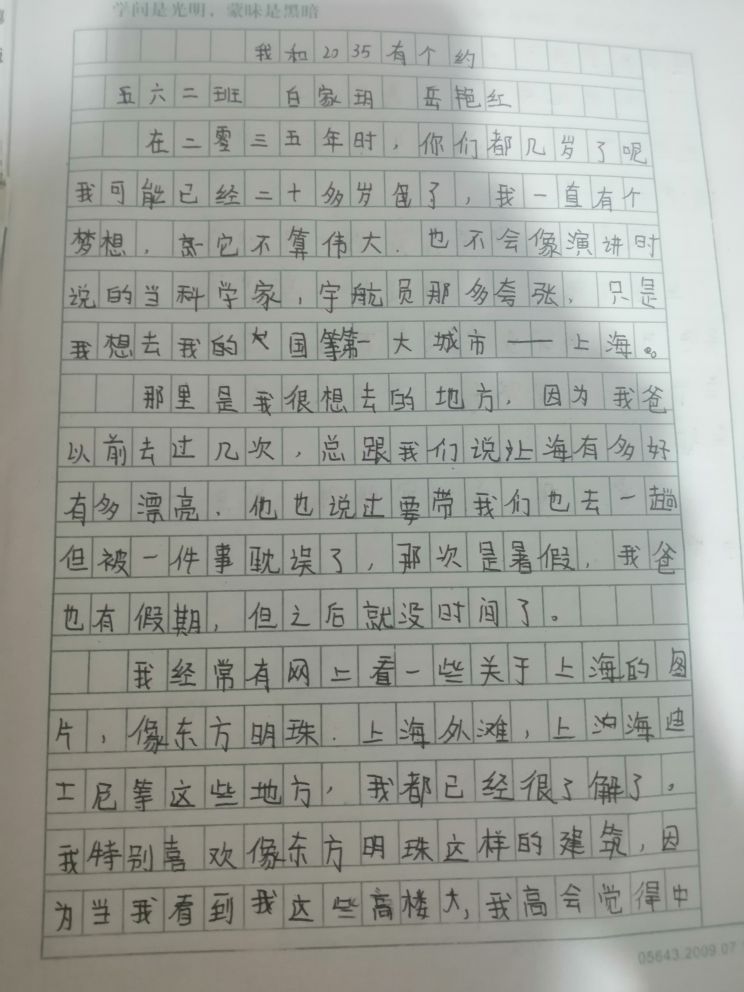 学问是光明，蒙昧是黑暗
我和2035有个约
五六二班 白家玥 岳艳红
在二零三五年时，你们都几岁了呢
我可能已经二十多岁了，我一直有个
梦想，它不算伟大．也不会像演讲时
说的当科学家，宇航员那多夸张，只是
我想去我的国第一大城市——上海。
那里是我很想去的地方，因为我爸
以前去过几次，总跟我们说上海有多好
有多漂亮．他也说过要带我们也去一趟
但被一件事耽误了，那次是暑假，我爸
也有假期，但之后就没时间了。
我经常有网上看一些关于上海的图
片，像东方明珠．上海外滩，上海迪
士尼等这些地方，我都已经很了解了。
我特别喜欢像东方明珠这样的建筑，因
为当我看到我这些高楼大，我高会觉得中
05643.2009.07